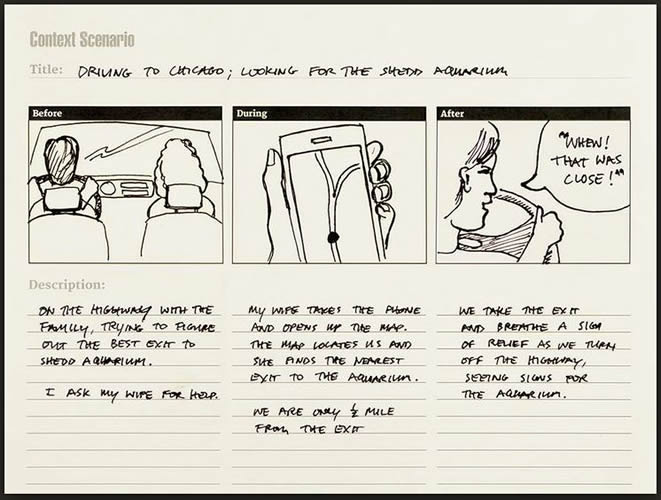 Context Scenario
Title: DRIVING TO CHICAGO; LOOKING FOR THE SHEDD AQUARIUM
Before
During
After
"WHEW!
THAT WAS
CLOSE!"
Description:
ON THE HIGHWAY WITH THE
FAMILY, TRYING TO FIGURE
OUT THE BEST EXIT TO
SHEDD AQUARIUM.
I ASK MY WIFE FOR HELP.
MY WIFE TAKES THE PHONE
AND OPENS UP THE MAP.
THE MAP LOCATES US AND
SHE FINDS THE NEAREST
EXIT TO THE AQUARIUM.
WE ARE ONLY ½ MILE
FROM THE EXIT
WE TAKE THE EXIT
AND BREATHE A SIGH
OF RELIEF AS WE TURN
OFF THE HIGHWAY,
SEEING SIGNS FOR
THE AQUARIUM.